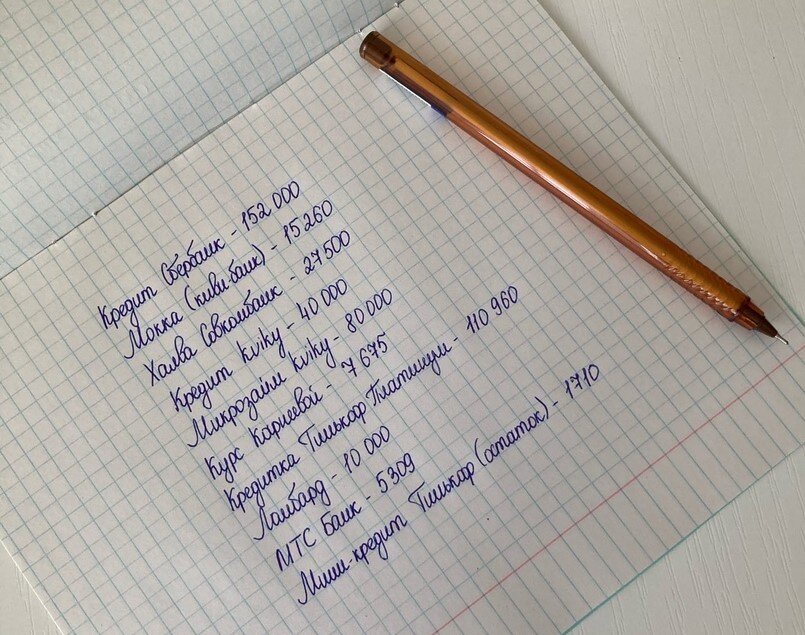 Кредит Сбербанк - 152 000
Мокка (киви-банк) - 15 260
Халва Совкомбанк - 27 500
Кредит kviky - 40 000
Микрозайм kviky - 80 000
Курс Кариевой - 7 675
Кредитка Тинькоф Платинум - 110 960
Ломбард - 10 000
МТС Банк - 5 309
Мини-кредит Тинькоф (остаток) - 1710